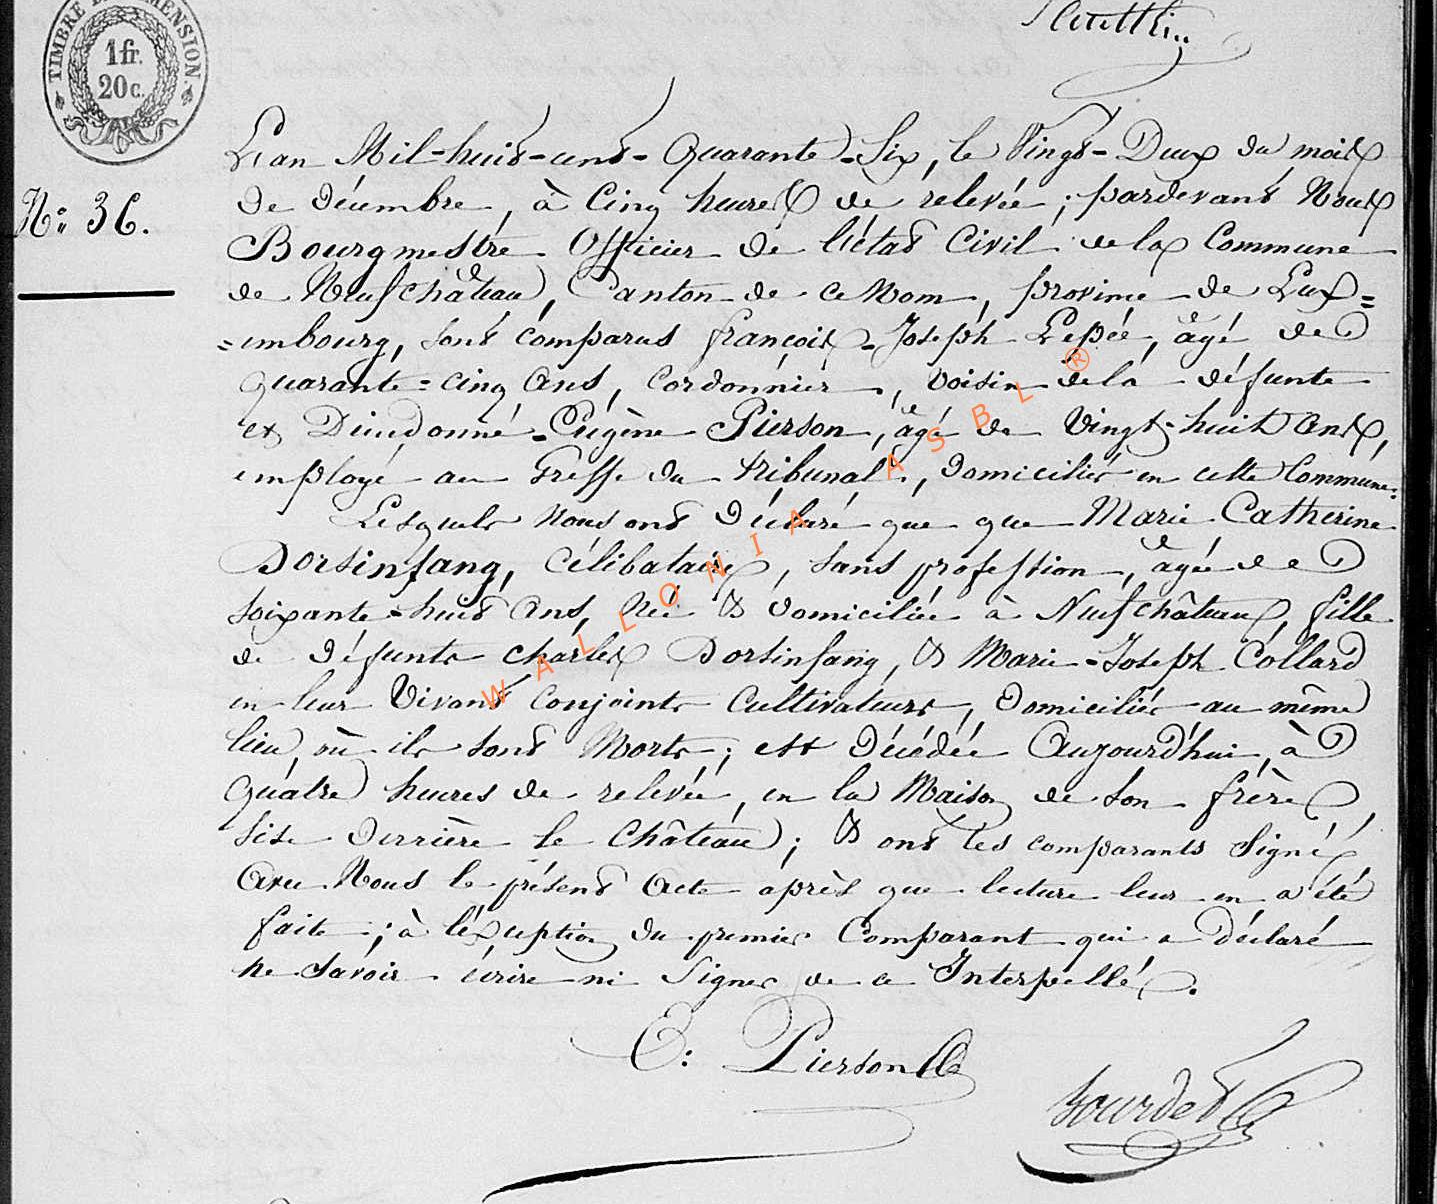 TIMBRE DE DIMENSION.
1 fr.
20 c.
N.° 36.
L'an Mil-huit-cent-Quarante-Six, le Vingt-Deux du mois
de décembre, à Cinq heures de relevée ; pardevant Nous
Bourgmestre Officier de l'état Civil de la Commune
de Neufchâteau, Canton de ce Nom, province de Lux=
=embourg, sont comparus françois-Joseph Lepée, âgé de
quarante=cinq Ans, Cordonnier, voisin dela défunte
et Dieudonné-Eugène Pierson, âgé de Vingt-huit Ans,
employé au Greffe du tribunal, domiciliés en cette Commune.
Lesquels Nous ont déclaré que que Marie Catherine
Dorsinfang, Célibataire, sans profession, âgée de
soixante-huit Ans, Née & domiciliée à Neufchâteau, fille
de défunts Charles Dorsinfang, & Marie-Joseph Collard
en leur Vivant Conjoints Cultivateurs, domiciliés au même
lieu, où ils sont Morts ; est décédée Aujourd'hui, à
quatre heures de relevée, en la Maison de son frère,
sise derrière le Château ; & ont les comparants signé,
Avec Nous le présent Acte après que lecture leur en a été
faite ; à l'éxception du premier Comparant qui a déclaré
ne savoir écrire ni signer de ce Interpellé.
E: Pierson
Gourdet
WALLONIA ASBL ®